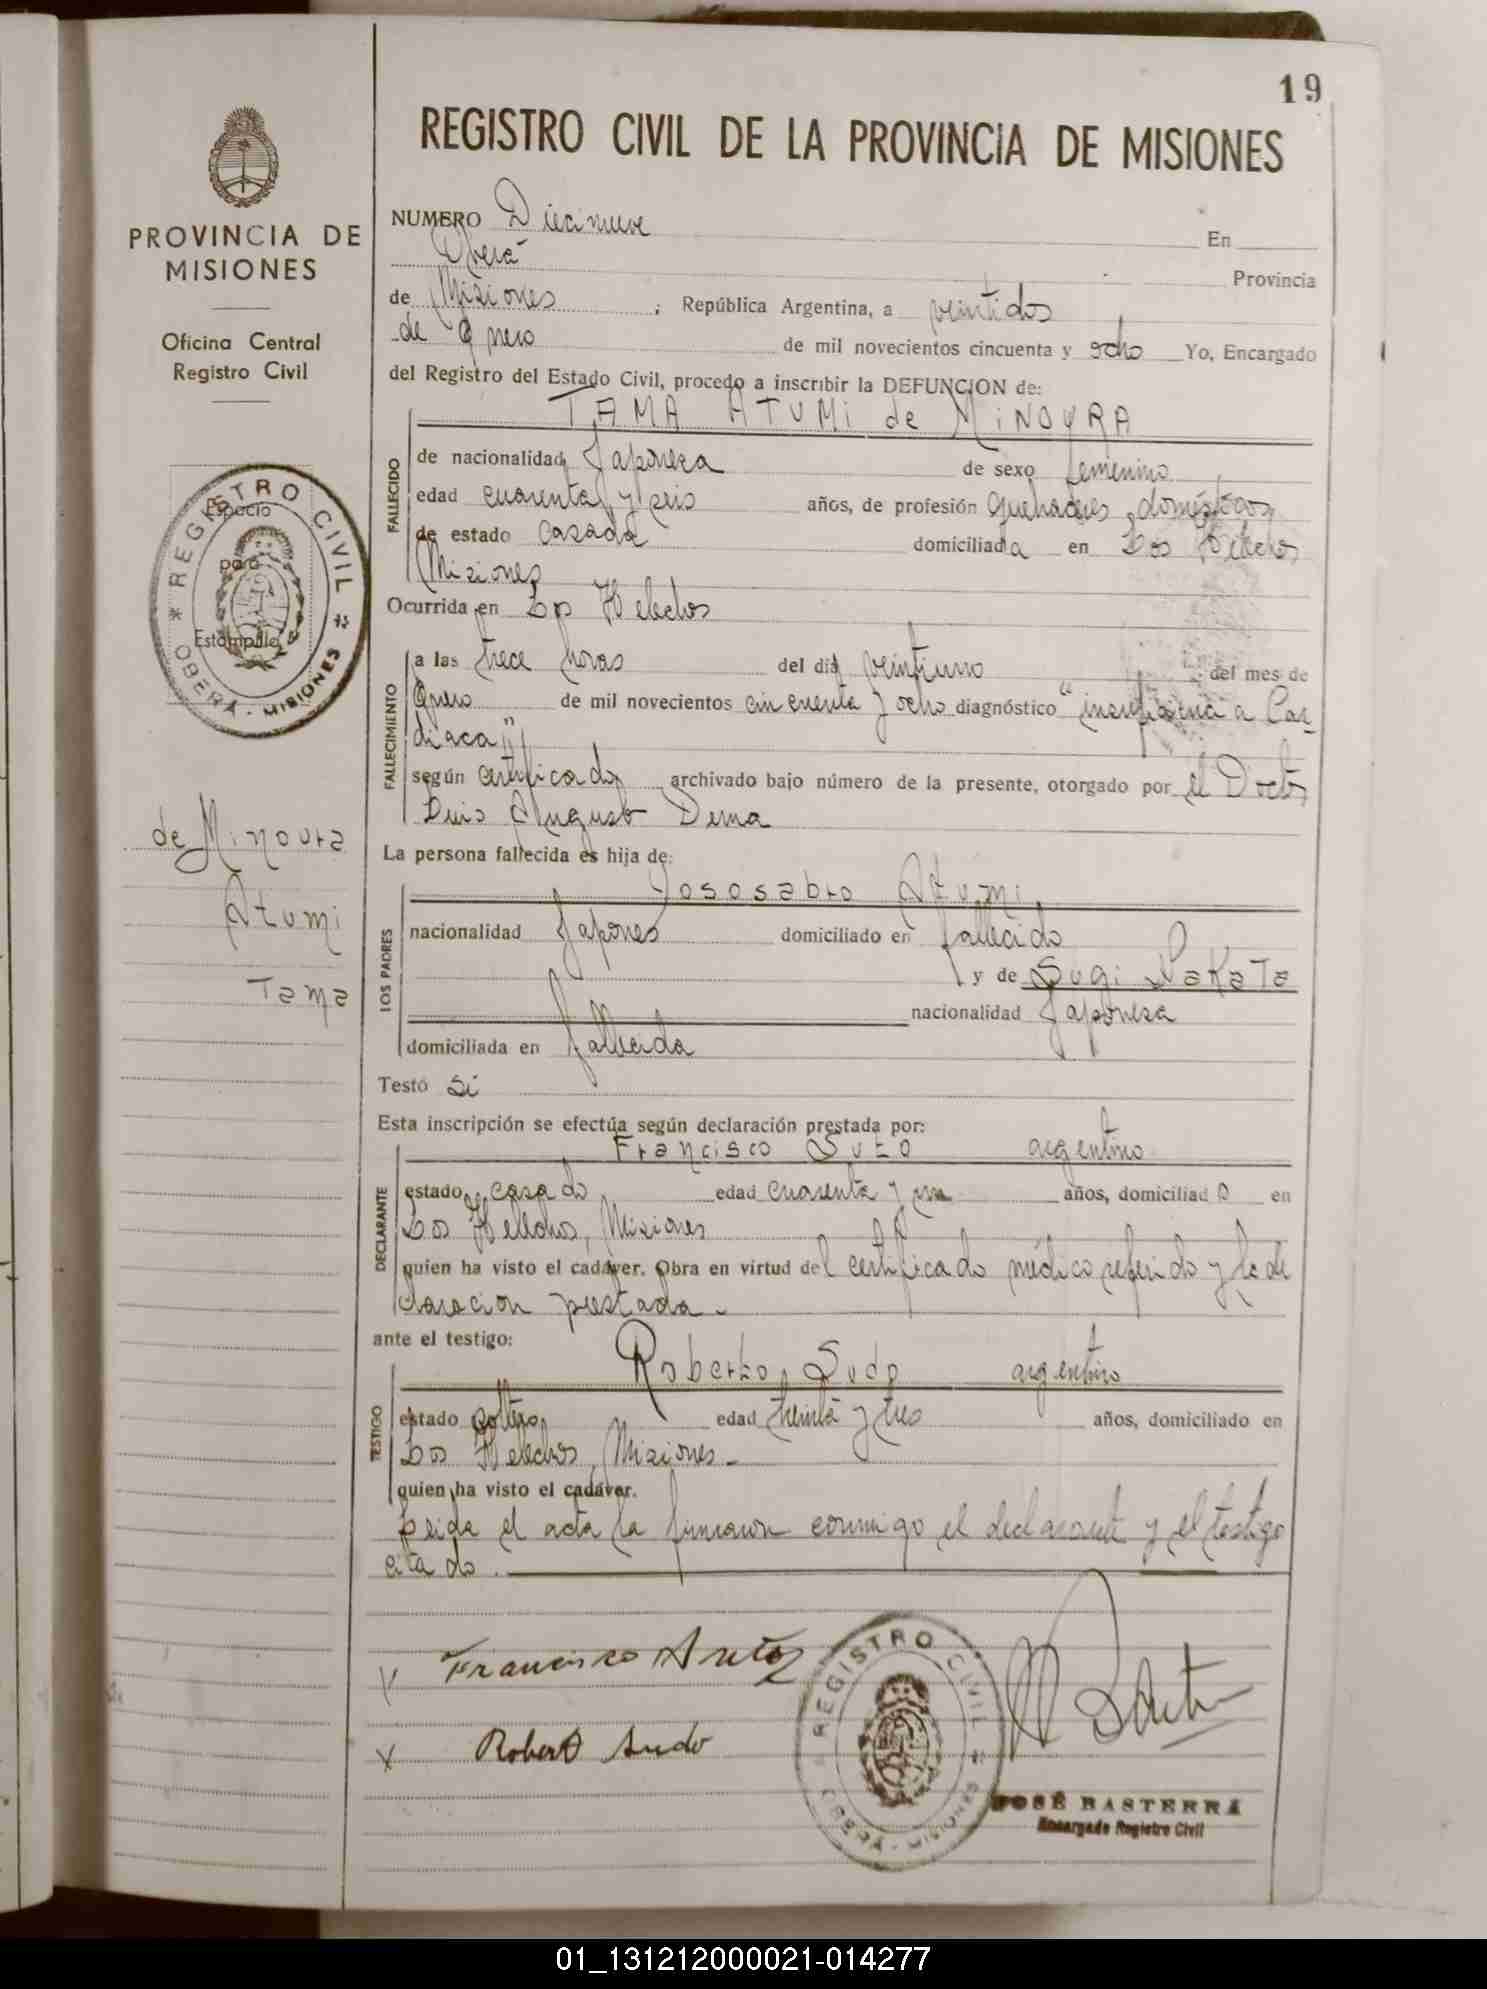 19
REGISTRO CIVIL DE LA PROVINCIA DE MISIONES
PROVINCIA DE
MISIONES
Oficina Central
Registro Civil
REGISTRO CIVIL
OBERÁ - MISIONES
Espacio
para
Estampilla
de Minoura
Atumi
Tama
NUMERO Diecinueve En
Oberá Provincia
de Misiones ; República Argentina, a veintidos
de Enero de mil novecientos cincuenta y ocho Yo, Encargado
del Registro del Estado Civil, procedo a inscribir la DEFUNCION de:
TAMA ATUMI de MINOURA
FALLECIDO
de nacionalidad Japonesa de sexo femenino
edad cuarenta y seis años, de profesión Quehaceres domésticos
de estado casada domiciliada en Los Helechos
Misiones
Ocurrida en Los Helechos
FALLECIMIENTO
a las trece horas del día veintiuno del mes de
Enero de mil novecientos cincuenta y ocho diagnóstico "insuficiencia Car
diaca"
según certificado archivado bajo número de la presente, otorgado por el Doctor
Luis Augusto Derna
La persona fallecida es hija de:
LOS PADRES
Yososabro Atumi
nacionalidad Japones domiciliado en fallecido
y de Sugi Sakata
nacionalidad Japonesa
domiciliada en fallecida
Testó Si
Esta inscripción se efectúa según declaración prestada por:
DECLARANTE
Francisco Suto argentino
estado casado edad cuarenta y un años, domiciliado en
Los Helechos, Misiones
quien ha visto el cadáver. Obra en virtud del certificado médico referido y la de
claracion prestada.
ante el testigo:
TESTIGO
Roberto Sudo argentino
estado soltero edad treinta y tres años, domiciliado en
Los Helechos, Misiones.
quien ha visto el cadáver.
Leida el acta la firmaron conmigo el declarante y el testigo
citado.
Francisco Suto
Roberto Sudo
REGISTRO CIVIL
OBERÁ - MISIONES
JOSÉ BASTERRA
Encargado Registro Civil
01_131212000021-014277